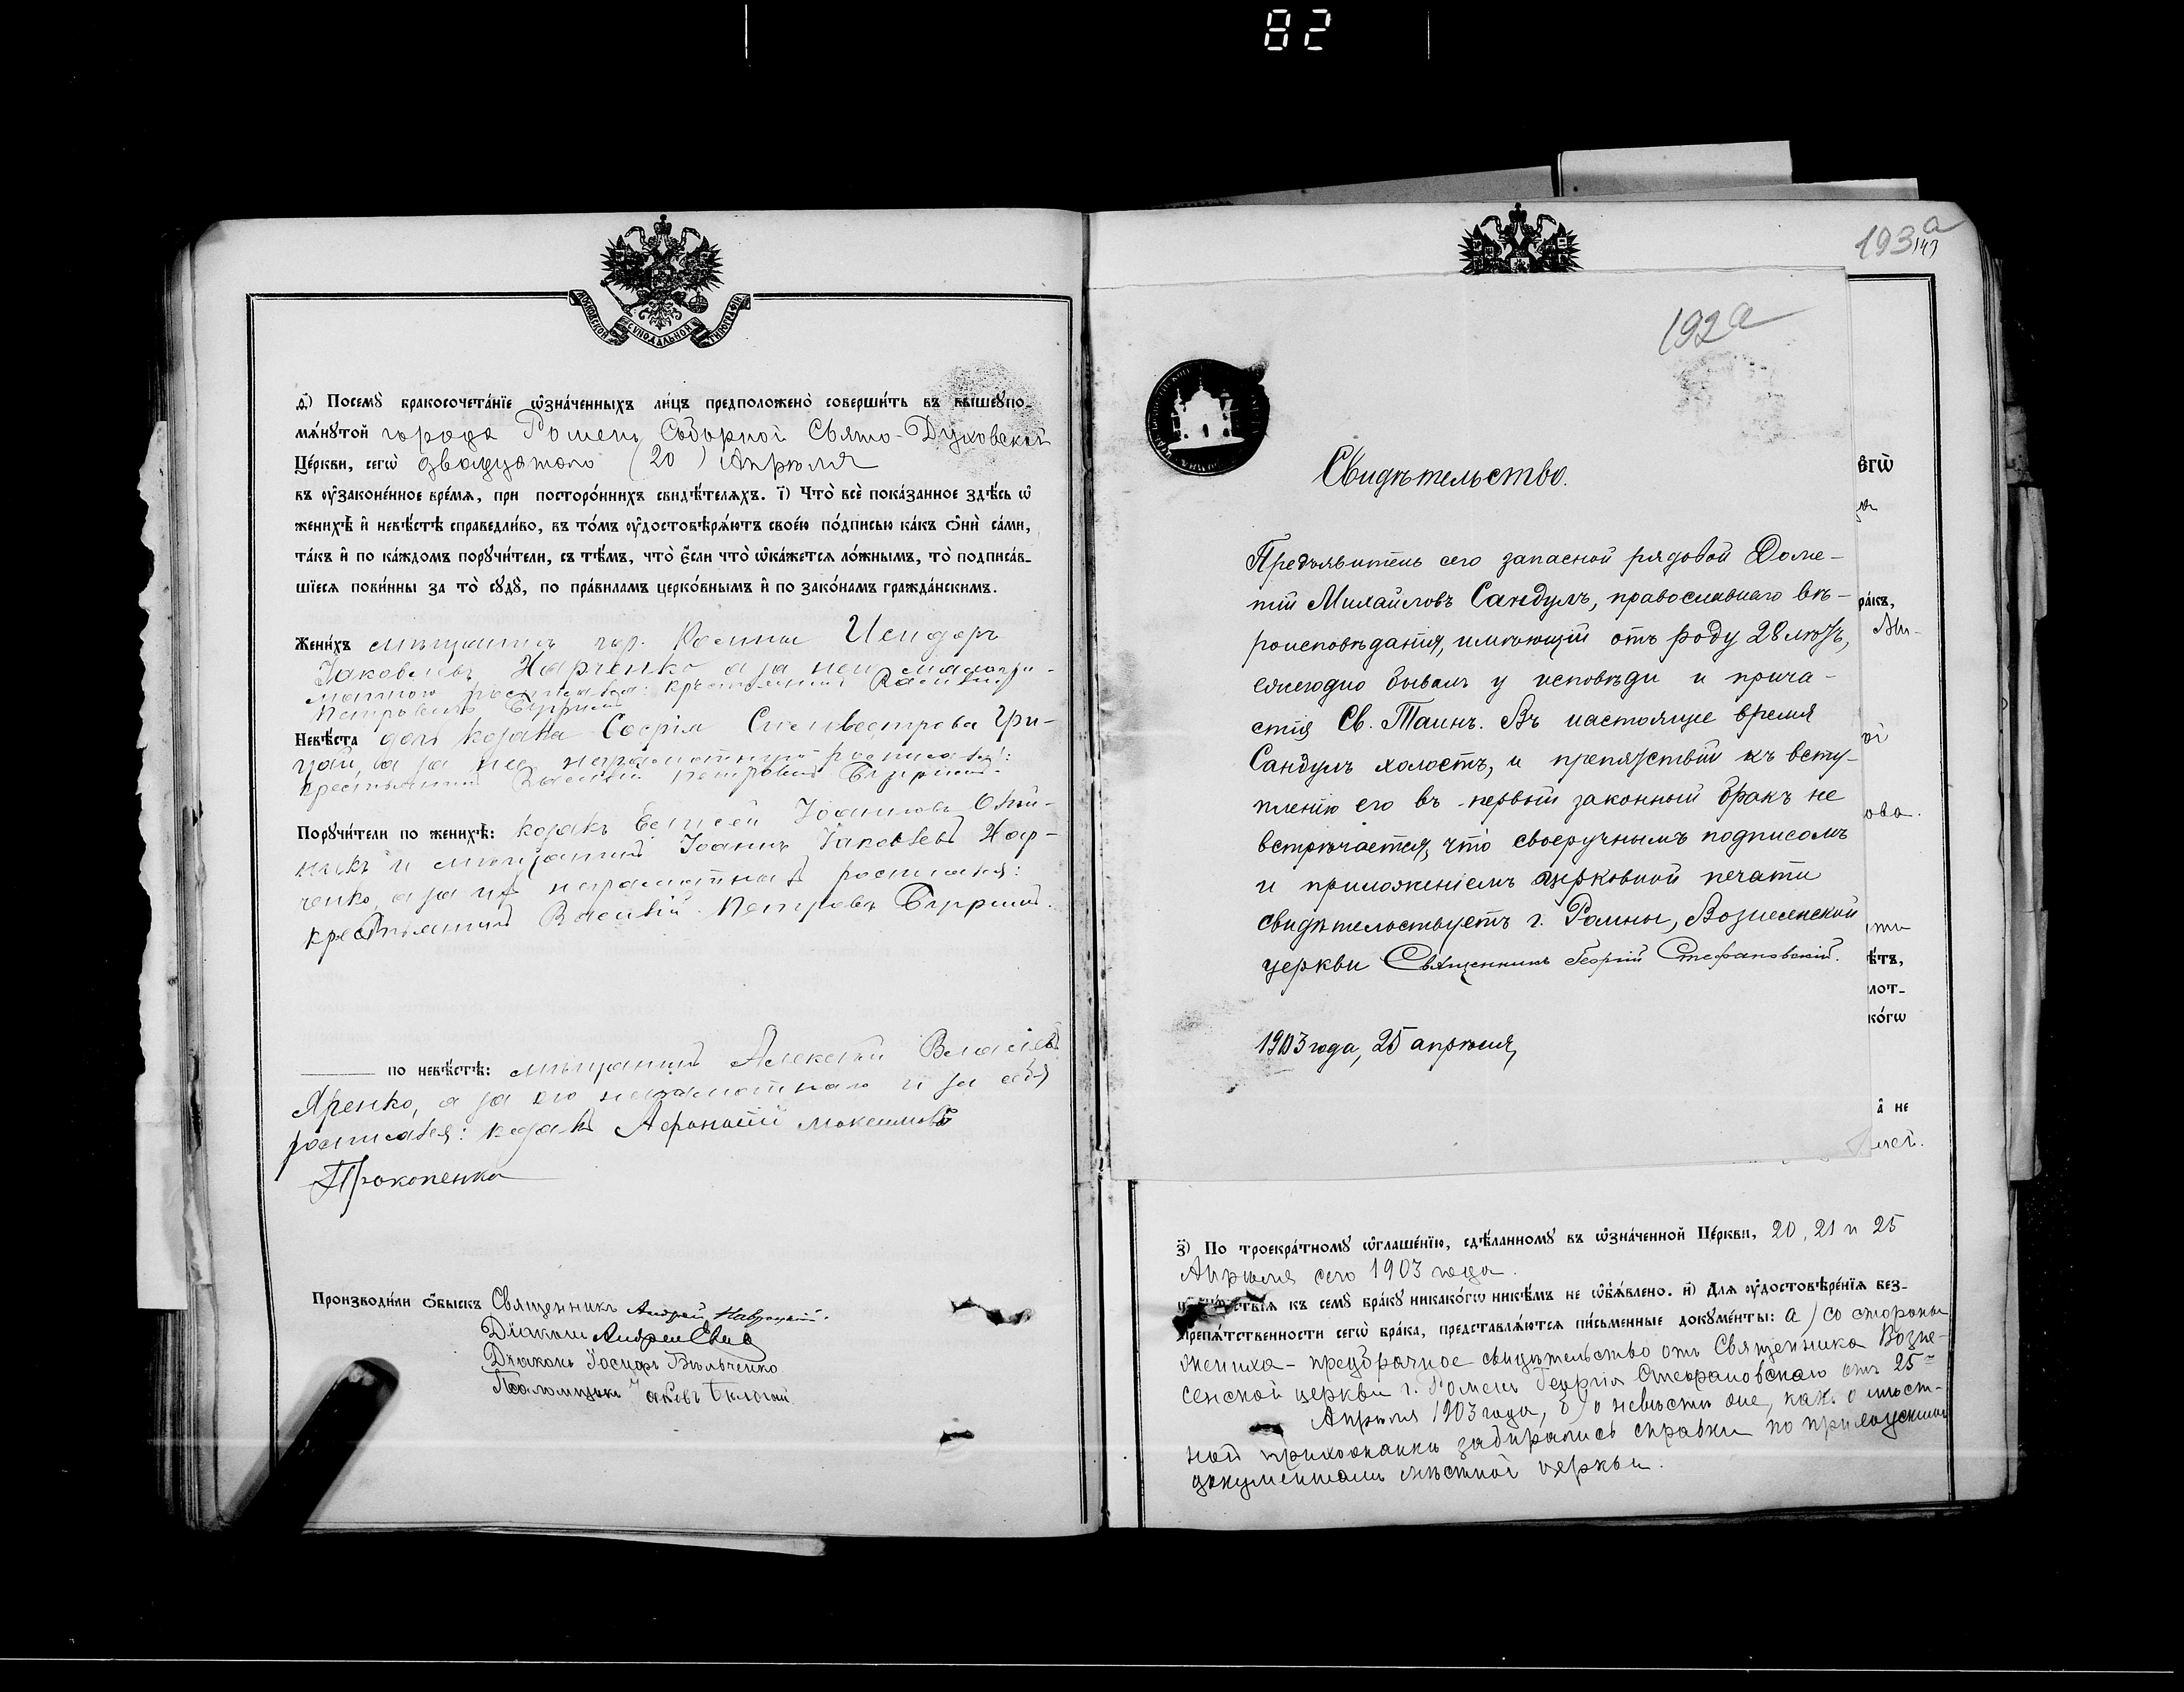 82
МОСКОВСКОЙ СѴНОДАЛЬНОЙ ТИПОГРАФІИ
д҃) Посемꙋ̀ бракосочета́нїе ѡ҆зна́ченныхъ ли́цъ предположено̀ соверши́ть въ вышеꙋпо-
мѧ́нꙋтой города Роменъ Соборной Свято-Духовской
Це́ркви, сегѡ̀ двадцатаго (20) Апрѣля
въ ᲂу҆законе́нное вре́мѧ, при посторо́ннихъ свидѣ́телѧхъ. і҃) Что̀ всѐ пока́занное здѣ́сь ѡ҆
женихѣ̀ и҆ невѣ́стѣ справедли́во, въ то́мъ ᲂу҆достовѣрѧ́ютъ свое́ю по́дписью ка́къ ѻ҆нѝ са́ми,
та́къ и҆ по ка́ждомъ порꙋчи́тели, съ тѣ́мъ, что̀ є҆́сли что̀ ѡ҆ка́жетсѧ ло́жнымъ, то̀ подписа́в-
шїесѧ пови́нны за то̀ сꙋдꙋ̀, по пра́виламъ церко́внымъ и҆ по зако́намъ гражда́нскимъ.
Жени́хъ мѣщанинъ гор. Ромны Исидоръ
Іаковлевъ Харченко а за него малогра-
мотного росписался: крестьянинъ Василій
Петровичъ
Невѣ́ста дочь козака Софія Сильвестрова Гри-
цай, а за нее неграмотную росписался:
крестьянинъ Василій Петровъ
Порꙋчи́тели по женихѣ̀: козакъ Евгеній Іоанновъ Олій-
никъ и мѣщанинъ Іоаннъ Іаковлевъ Хар-
ченко, а за нихъ неграмотныхъ росписался:
крестьянинъ Василій Петровъ
по невѣ́стѣ: мѣщанинъ Алексѣй Власіевъ
Яренко, а за его неграмотнаго и за себя
росписался: козакъ Афанасій Максимовъ
Прокопенко
Производи́ли ѻ҆́быскъ Священникъ Андрей Навроцкій.
Діаконъ Андрей
Діаконъ Іосифъ Вильченко
Псаломщикъ Іаковъ
193а
147
192а
Свидѣтельство.
Предъявитель сего запасной рядовой Доме-
тій Михайловъ Сандулъ, православнаго вѣ-
роисповѣданія, имѣющій отъ роду 28 лѣтъ,
ежегодно бывалъ у исповѣди и прича-
стія Св. Таинъ. Въ настоящее время
Сандулъ холостъ, и препятствій къ всту-
пленію его въ первый законный бракъ не
встрѣчается, что своеручнымъ подписомъ
и приложеніемъ церковной печати
свидѣтельствуетъ г. Ромны, Вознесенской
церкви Священникъ Георгій Стефановскій.
1903 года, 25 апрѣля
сегѡ̀
ра́къ,
Ми-
ой
ова.
ѣтъ,
лот-
ко́гѡ
а҆ не
з҃) По троекра́тномꙋ ѡ҆глаше́нїю, сдѣ́ланномꙋ въ ѡ҆зна́ченной Це́ркви, 20, 21 и 25
Апрѣля сего 1903 года.
къ семꙋ̀ бра́кꙋ никако́гѡ никѣ́мъ не ѡ҆б̾ѧ́влено. и҃) Для ᲂу҆достовѣре́нїѧ без-
препѧ́тственности сегѡ̀ бра́ка, представлѧ́ютсѧ пи́сьменные докꙋме́нты: а) со стороны
жениха – предбрачное свидѣтельство отъ Священника Возне-
сенской церкви г. Роменъ Георгія Стефановскаго отъ 25го
Апрѣля 1903 года, б) о невѣстѣ же, какъ о мѣст-
ной прихожанкѣ забирались справки по приходскимъ
документамъ мѣстной церкви.